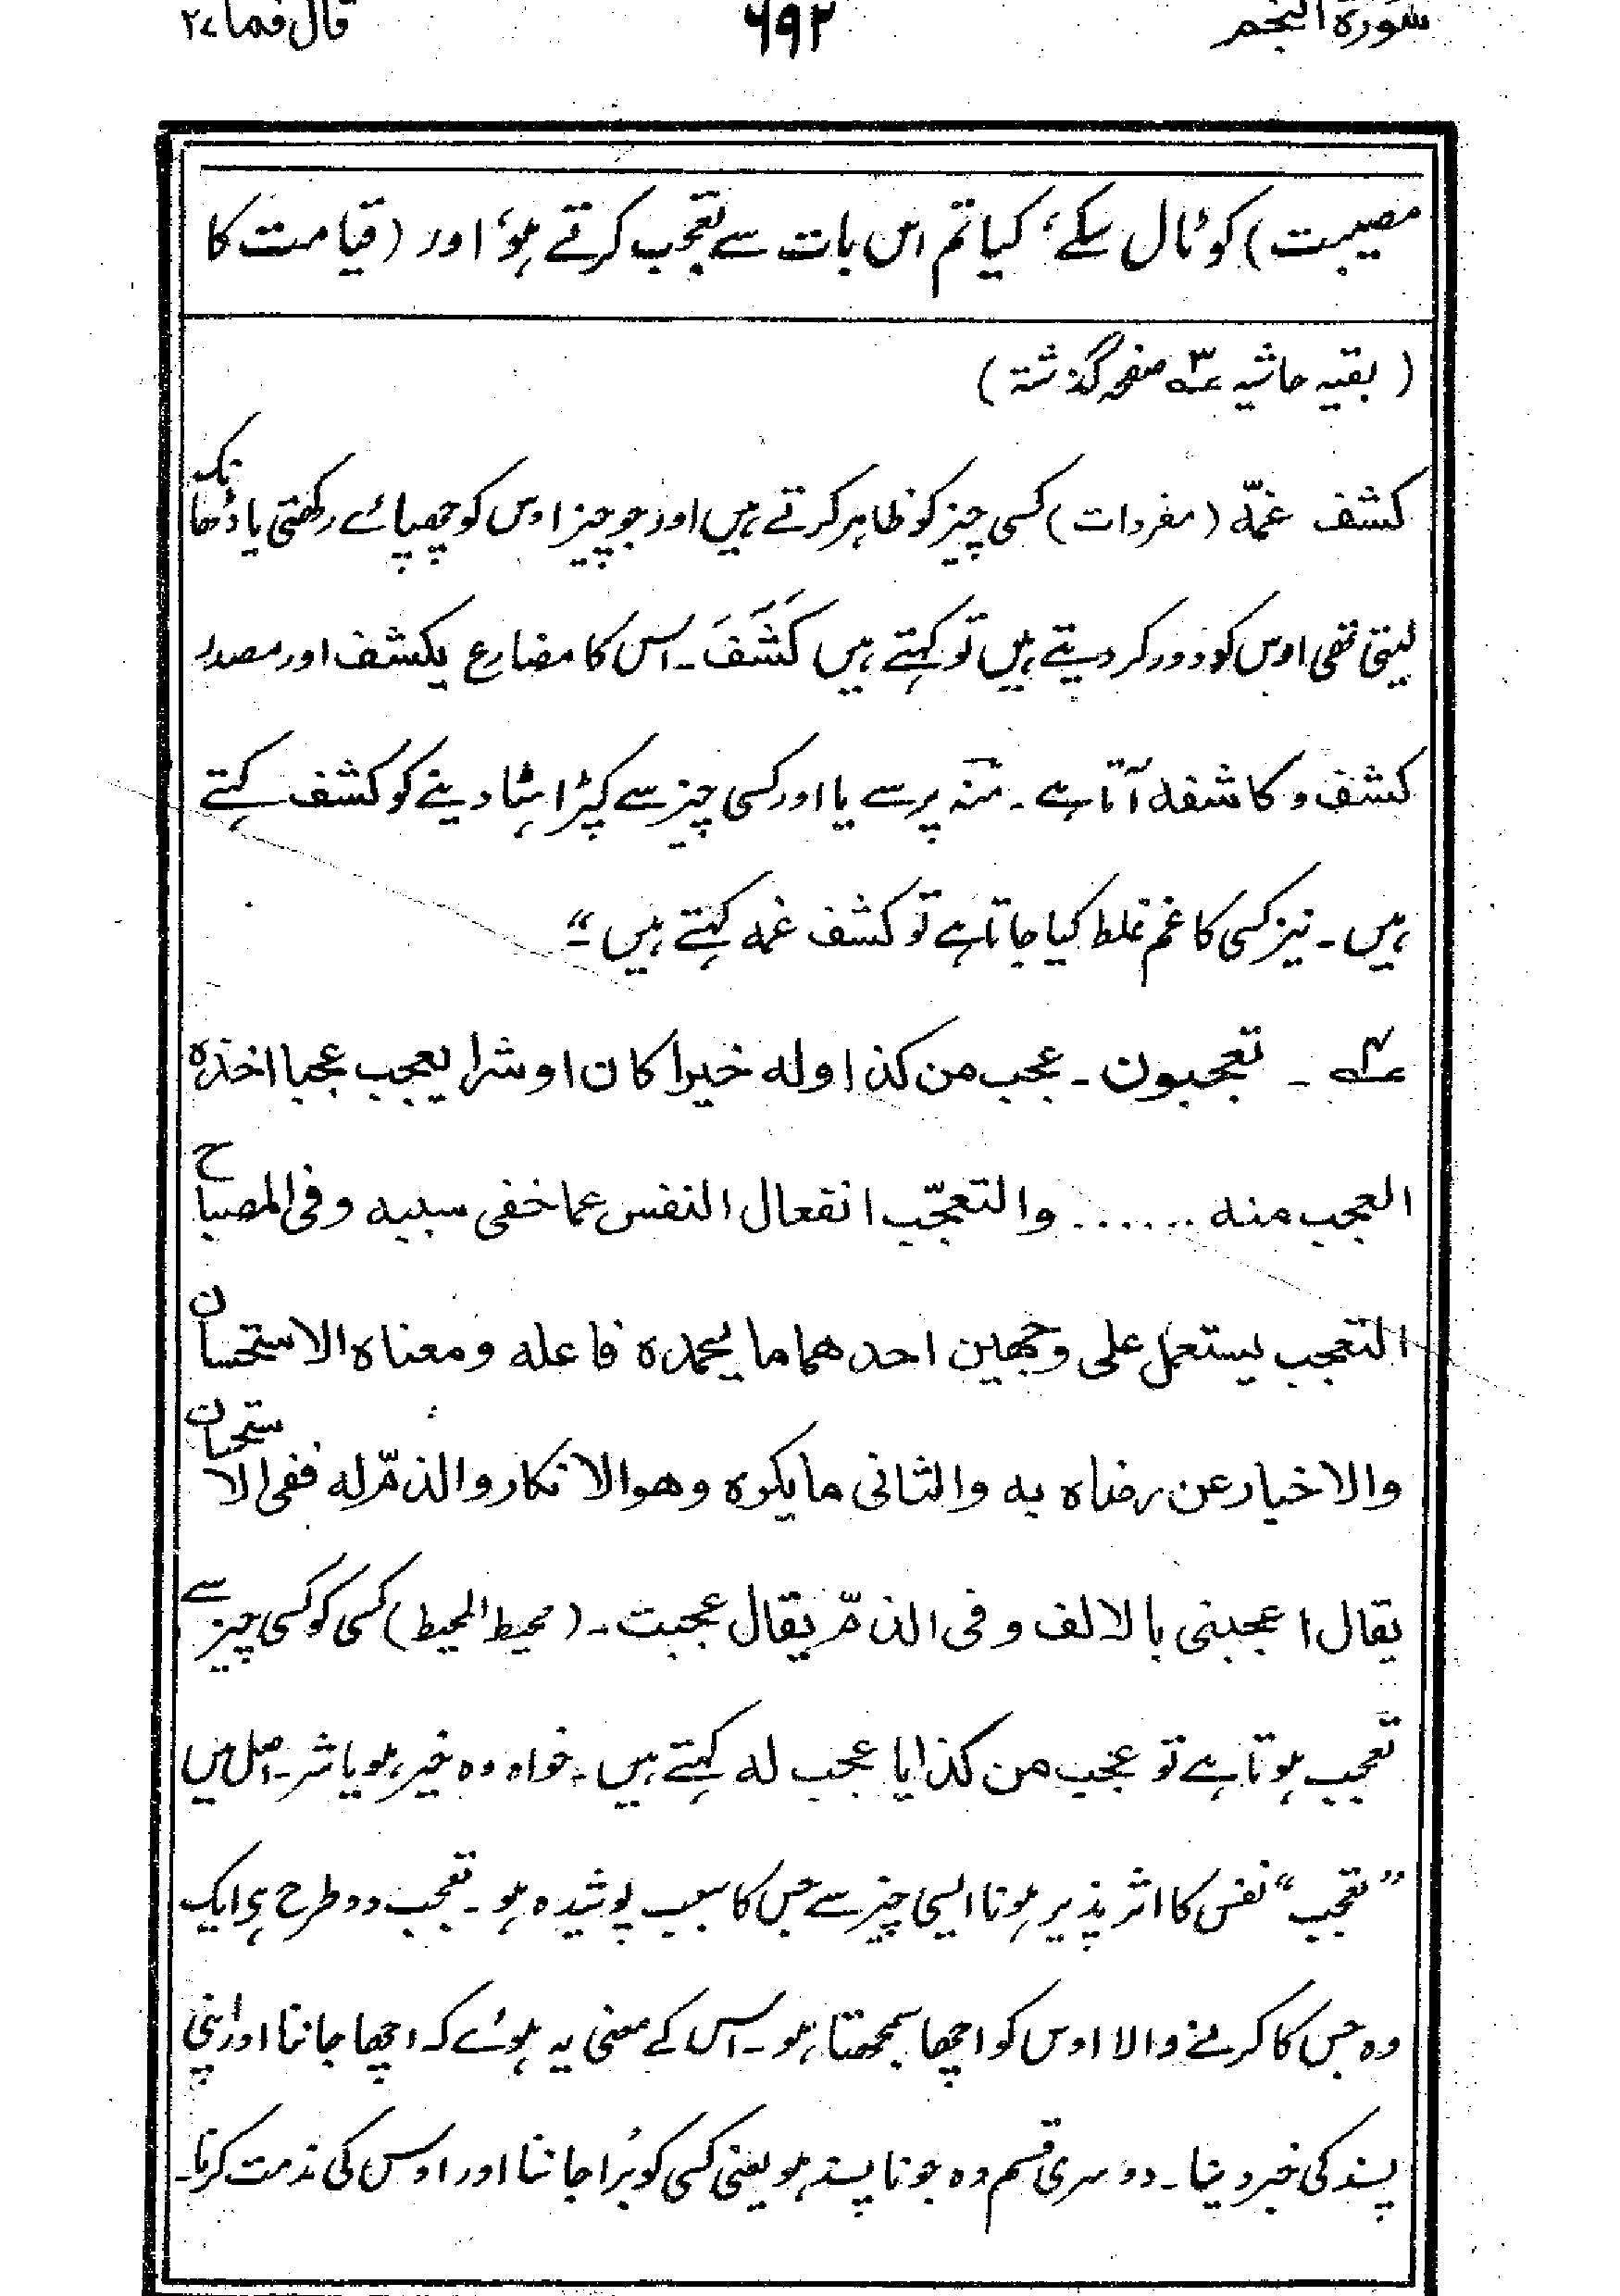 سورۃ النجم ۶۹۲ قال فما ۲۷
مصیبت) کو ٹال سکے، کیا تم اس بات سے تعجب کرتے ہو، اور (قیامت کا
(بقیہ حاشیہ ۳؎ صفحہ گذشتہ)
کشف غمّہ (مفردات) کسی چیز کو ظاہر کرتے ہیں اور جو چیز اوس کو چھپائے رکھتی یا ڈھانک
لیتی تھی اوس کو دور کر دیتے ہیں تو کہتے ہیں کَشَفَ۔ اس کا مضارع یکشف اور مصدر
کشف و کاشفہ آتا ہے۔ منہ پر سے یا اور کسی چیز سے کپڑا ہٹا دینے کو کشف کہتے
ہیں۔ نیز کسی کا غم غلط کیا جاتا ہے تو کشف غمہ کہتے ہیں۔"
۴؎ ۔ تعجبون۔ عجب من کذا ولہ خیرا کان او شرا یعجب عجبا اخذہ
العجب منہ ...... والتعجّب انفعال النفس عما خفی سببہ وفی المصباح
التعجب یستعمل علی وجھین احدھما ما یحمدہ فاعلہ ومعناہ الاستحسان
والاخبار عن رضاہ بہ والثانی ما یکرہ وھو الانکار والذمّ لہ ففی الاستحسان
یقال اعجبنی بالالف وفی الذمّ یقال عجبت۔ (محیط المحیط) کسی کو کسی چیز سے
تعجب ہوتا ہے تو عجب من کذا یا عجب لہ کہتے ہیں۔ خواہ وہ خیر ہو یا شر۔ اصل میں
"تعجب" نفس کا اثر پذیر ہونا ایسی چیز سے جس کا سبب پوشیدہ ہو۔ تعجب دو طرح ہے ایک
وہ جس کا کرنے والا اوس کو اچھا سمجھتا ہو۔ اس کے معنی یہ ہوئے کہ اچھا جاننا اور اپنی
پسند کی خبر دینا۔ دوسری قسم وہ جو ناپسند ہو یعنی کسی کو بُرا جاننا اور اوس کی مذمت کرنا۔